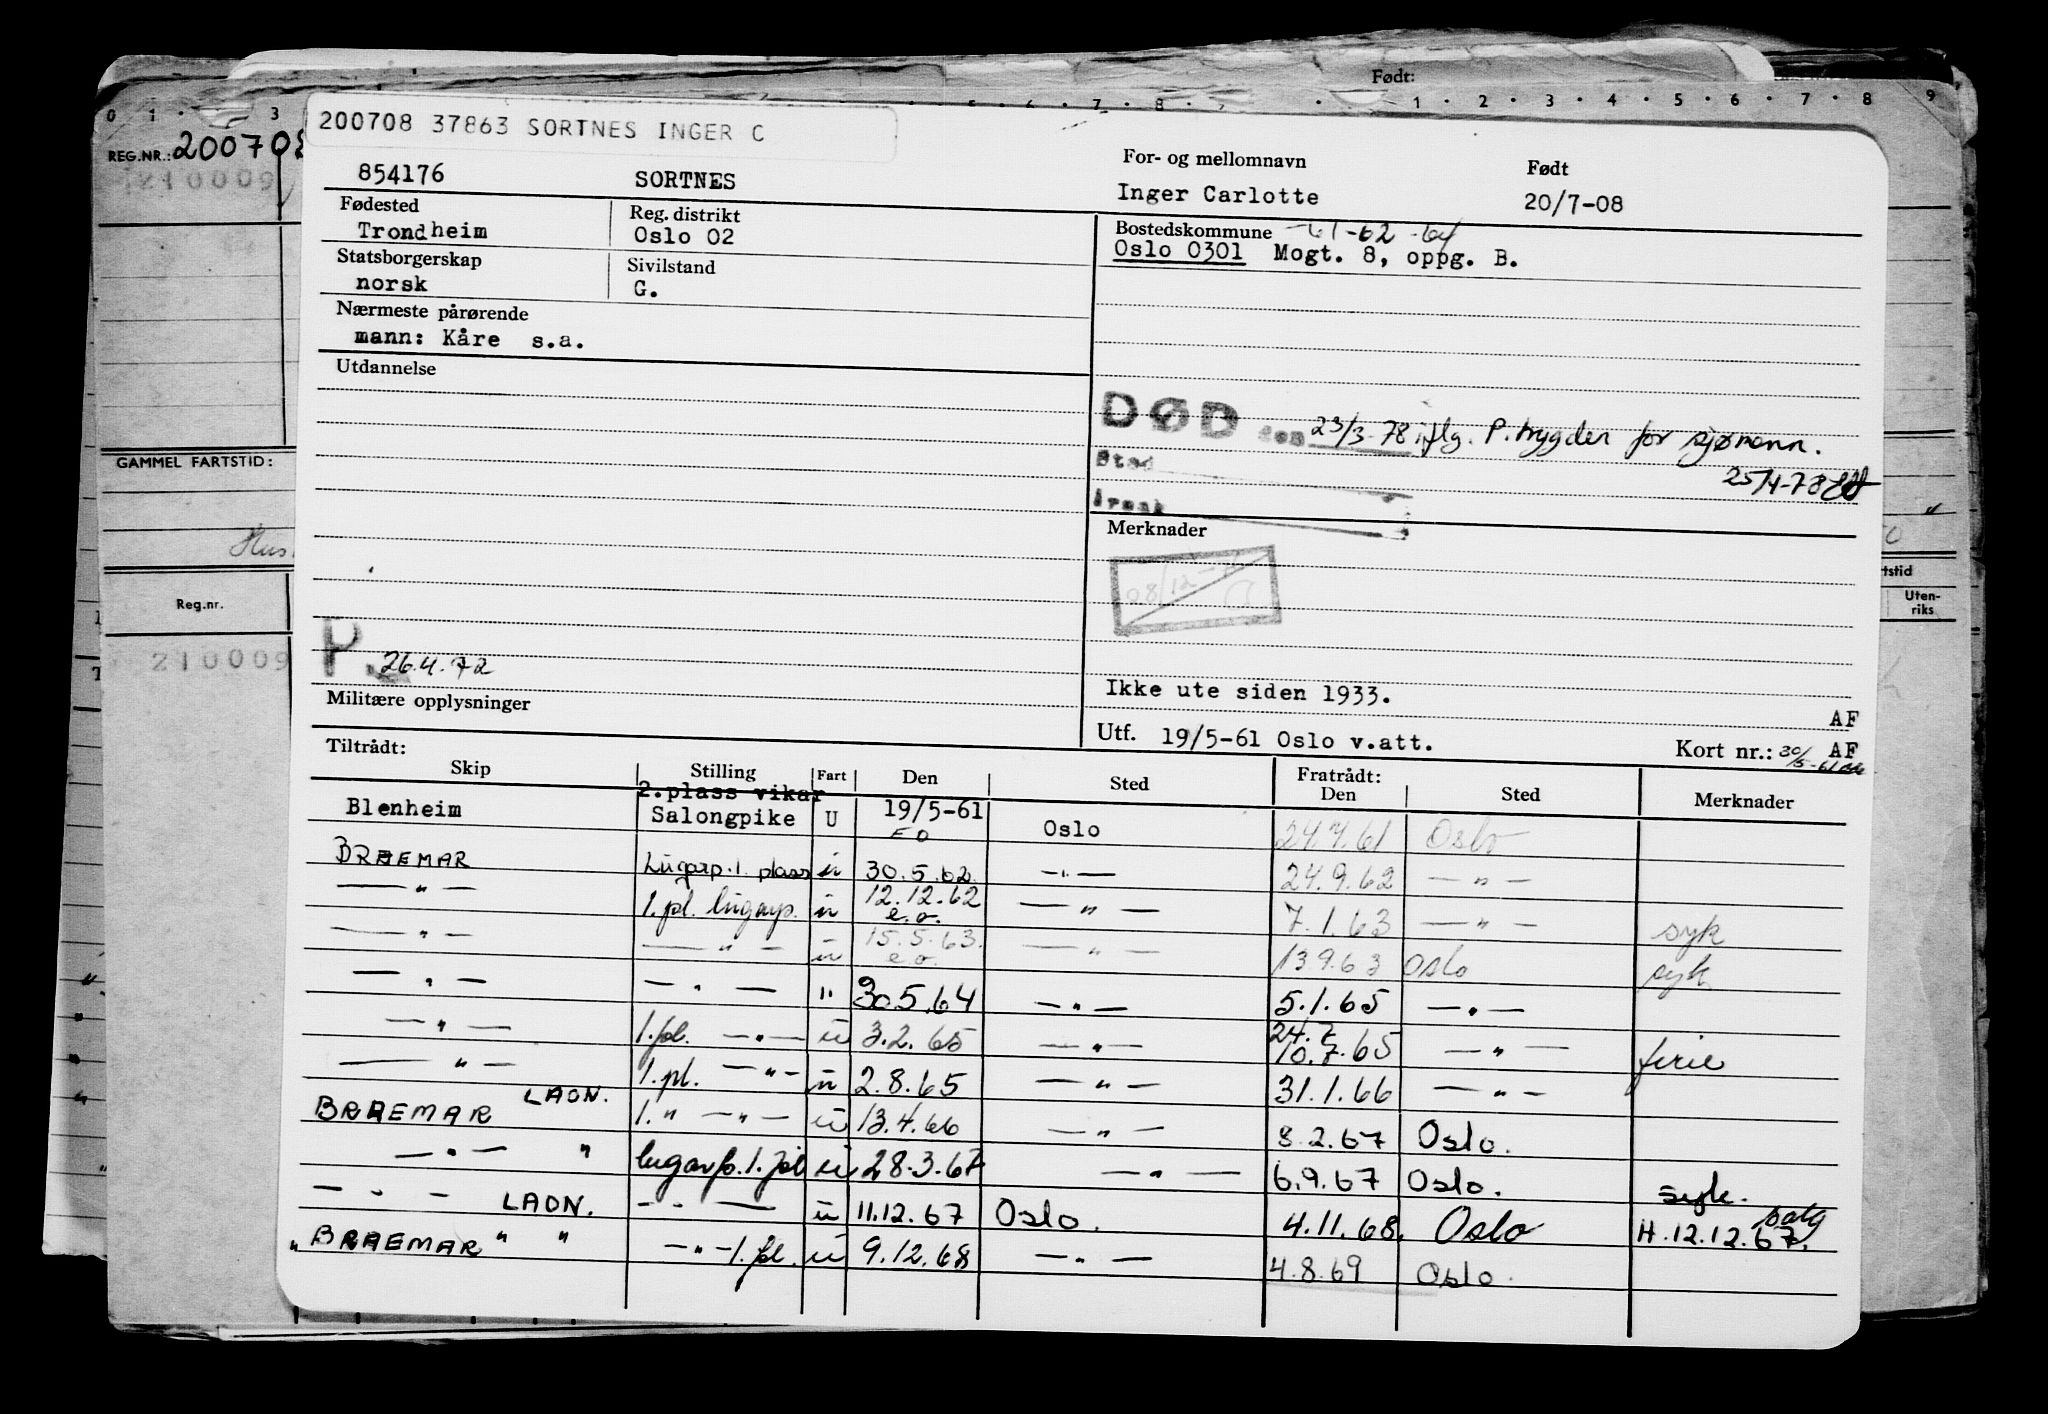 Født:
0 1 . 3 5 . 6 . 7 . 8 . 1 . 2 . 3 . 4 . 5 . 6 . 7 . 8 9
REG.NR.: 200708
210009
200708 37863 SORTNES INGER C
854176 SORTNES
For- og mellomnavn Født
Inger Carlotte 20/7-08
Fødested Reg. distrikt
Trondheim Oslo 02
Bostedskommune -61-62-64
Oslo 0301 Mogt. 8, oppg. B.
Statsborgerskap Sivilstand
norsk G.
Nærmeste pårørende
mann: Kåre s.a.
Utdannelse
DØD den 23/3-78 iflg. P.trygden for sjømenn.
25/4-78
Sted
Årsak
GAMMEL FARTSTID:
Hus
Merknader
Reg.nr.
210009
rtstid
Uten-
riks
P. 26.4.72
Ikke ute siden 1933.
AF
Militære opplysninger
Utf. 19/5-61 Oslo v.att. Kort nr.: 30/5-61 AF
Tiltrådt: Fratrådt:
Skip Stilling Fart Den Sted Den Sted Merknader
Blenheim 2.plass vikar Salongpike U 19/5-61 Oslo 24.7.61 Oslo
EO
BRAEMAR Lugarp. 1. plass u 30.5.62 -"- 24.9.62 -"-
-"- 1.pl. lugarp. u 12.12.62 -"- 7.1.63 -"- syk
e.o.
-"- -"- u 15.5.63. -"- 13.9.63 Oslo syk
e.o.
-"- -"- " 30.5.64 -"- 5.1.65 -"-
-"- 1.pl. -"- u 3.2.65 -"- 24.7 10.7.65 -"- ferie
-"- 1.pl. -"- u 2.8.65 -"- 31.1.66 -"-
BRAEMAR LADN. 1." -"- u 13.4.66 -"- 8.2.67 Oslo.
-"- " lugarp. 1. pl u 28.3.67 -"- 6.9.67 Oslo. syk.
-"- LADN. -"- u 11.12.67 Oslo. 4.11.68. Oslo H.12.12.67.
" BRAEMAR " " -"- 1.pl. u 9.12.68 -"- 4.8.69 Oslo.